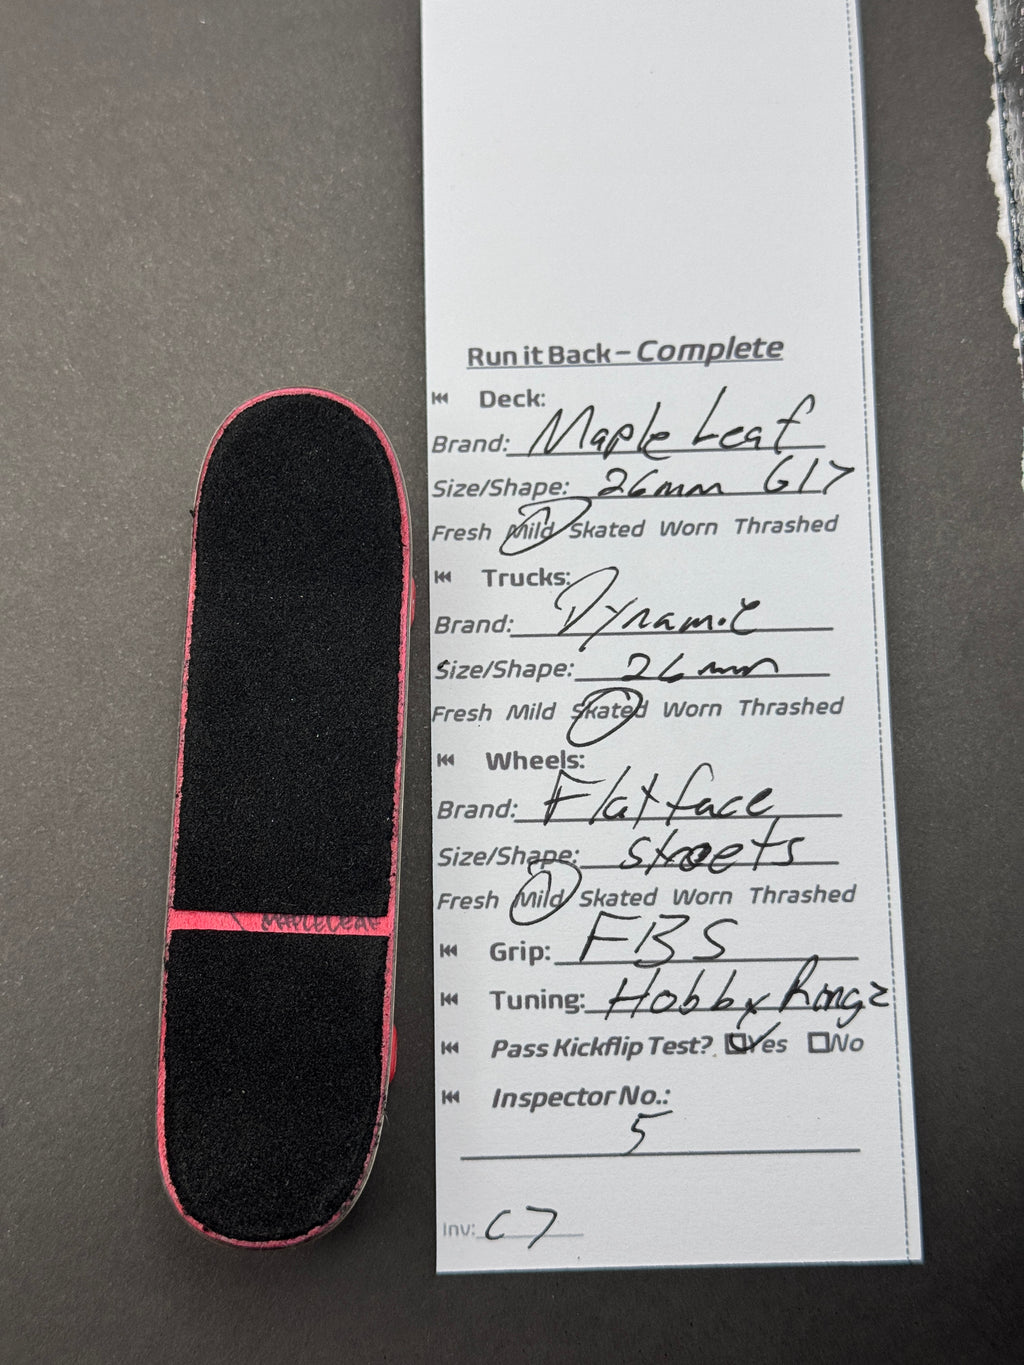 Run it Back – Complete
Deck:
Brand: Maple Leaf
Size/Shape: 26mm G17
Fresh Mild Skated Worn Thrashed
Trucks:
Brand: Dynamic
Size/Shape: 26mm
Fresh Mild Skated Worn Thrashed
Wheels:
Brand: Flatface
Size/Shape: streets
Fresh Mild Skated Worn Thrashed
MAPLELEAF
Grip: FBS
Tuning: Hobby Ringz
Pass Kickflip Test? Yes No
Inspector No.:
5
Inv: C7